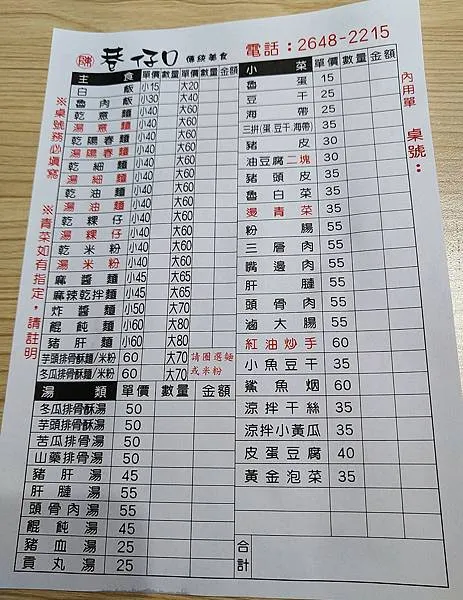 巷仔口 傳統美食 電話：2648-2215
主食 單價 數量 單價 數量 金額
白飯 小15 大20
魯肉飯 小30 大40
乾意麵 小40 大60
湯意麵 小40 大60
乾陽春麵 小40 大60
湯陽春麵 小40 大60
乾細麵 小40 大60
湯細麵 小40 大60
乾油麵 小40 大60
湯油麵 小40 大60
乾粿仔 小40 大60
湯粿仔 小40 大60
乾米粉 小40 大60
湯米粉 小40 大60
麻醬麵 小45 大65
麻辣乾拌麵 小45 大65
炸醬麵 小50 大70
餛飩麵 小60 大80
豬肝麵 小60 大80
芋頭排骨酥麵/米粉 60 大70 請圈選麵
冬瓜排骨酥麵/米粉 60 大70 或米粉
湯類 單價 數量 金額
冬瓜排骨酥湯 50
芋頭排骨酥湯 50
苦瓜排骨湯 50
山藥排骨湯 50
豬肝湯 45
肝膗湯 55
頭骨肉湯 55
餛飩湯 45
豬血湯 25
貢丸湯 25
小菜 單價 數量 金額
魯蛋 15
豆干 25
海帶 25
三拼(蛋.豆干.海帶) 55
豬皮 30
油豆腐二塊 30
豬頭皮 35
魯白菜 35
燙青菜 35
粉腸 55
三層肉 55
嘴邊肉 55
肝膗 55
頭骨肉 55
滷大腸 55
紅油炒手 60
小魚豆干 35
鯊魚烟 60
涼拌干絲 35
涼拌小黃瓜 35
皮蛋豆腐 40
黃金泡菜 35
合計
內用單 桌號：
※桌號務必填寫
※青菜如有指定，請註明